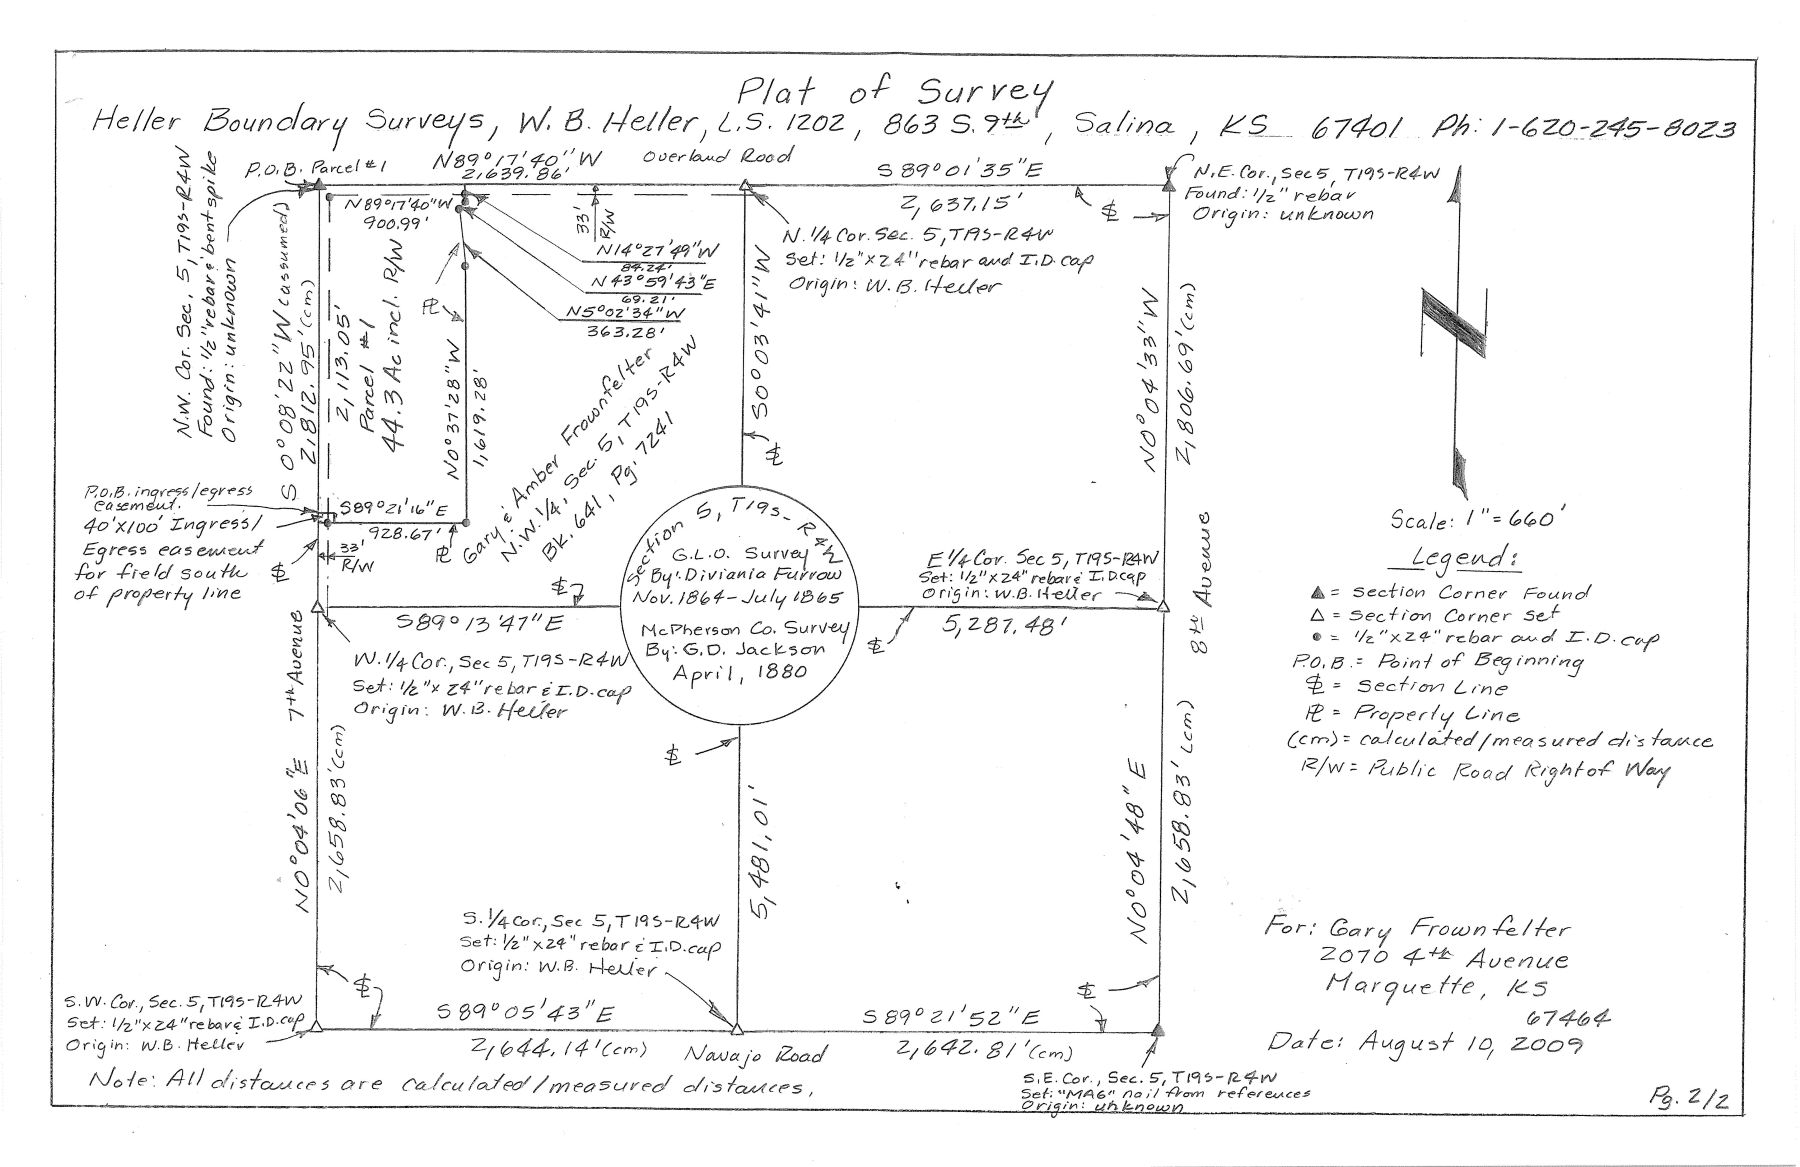 Plat of Survey
Heller Boundary Surveys, W. B. Heller, L.S. 1202, 863 S. 9th, Salina, KS 67401 Ph: 1-620-245-8023
P.O.B. Parcel #1
N89°17'40"W
2,639.86'
Overland Road
S 89°01'35"E
2,637.15'
N.E. Cor., Sec 5, T19S-R4W
Found: 1/2" rebar
Origin: unknown
N.W. Cor. Sec. 5, T19S-R4W
Found: 1/2" rebar & bent spike
Origin: unknown
N89°17'40"W
900.99'
33'
R/W
N14°27'49"W
84.24'
N43°59'43"E
69.21'
N5°02'34"W
363.28'
N. 1/4 Cor. Sec. 5, T19S-R4W
Set: 1/2" x 24" rebar and I.D. cap
Origin: W.B. Heller
S 0°08'22"W (assumed)
2,812.95' (cm)
2,113.05'
Parcel #1
44.3 Ac incl. R/W
N0°37'28"W
1,619.28'
Gary & Amber Frownfelter
N.W. 1/4, Sec. 5, T19S-R4W
Bk. 641, Pg. 7241
S0°03'41"W
N0°04'33"W
2,806.69' (cm)
P.O.B. ingress/egress
easement.
40'x100' Ingress/
Egress easement
for field south
of property line
S89°21'16"E
928.67'
33'
R/W
Section 5, T19S-R4W
G.L.O. Survey
By: Diviania Furrow
Nov. 1864-July 1865
McPherson Co. Survey
By: G.D. Jackson
April, 1880
E 1/4 Cor. Sec 5, T19S-R4W
Set: 1/2" x 24" rebar & I.D. cap
Origin: W.B. Heller
S89°13'47"E
5,287.48'
8th Avenue
7th Avenue
W. 1/4 Cor., Sec 5, T19S-R4W
Set: 1/2" x 24" rebar & I.D. cap
Origin: W.B. Heller
N0°04'06"E
2,658.83' (cm)
5,481.01'
N0°04'48"E
2,658.83' (cm)
S. 1/4 Cor., Sec 5, T19S-R4W
Set: 1/2" x 24" rebar & I.D. cap
Origin: W.B. Heller
S.W. Cor., Sec. 5, T19S-R4W
Set: 1/2" x 24" rebar & I.D. cap
Origin: W.B. Heller
S89°05'43"E
2,644.14' (cm)
Navajo Road
S89°21'52"E
2,642.81' (cm)
S.E. Cor., Sec. 5, T19S-R4W
Set: "MAG" nail from references
Origin: unknown
Note: All distances are calculated/measured distances.
Scale: 1" = 660'
Legend:
▲ = Section Corner Found
△ = Section Corner Set
● = 1/2" x 24" rebar and I.D. cap
P.O.B. = Point of Beginning
℄ = Section Line
PL = Property Line
(cm) = calculated/measured distance
R/W = Public Road Right of Way
For: Gary Frownfelter
2070 4th Avenue
Marquette, KS
67464
Date: August 10, 2009
Pg. 2/2